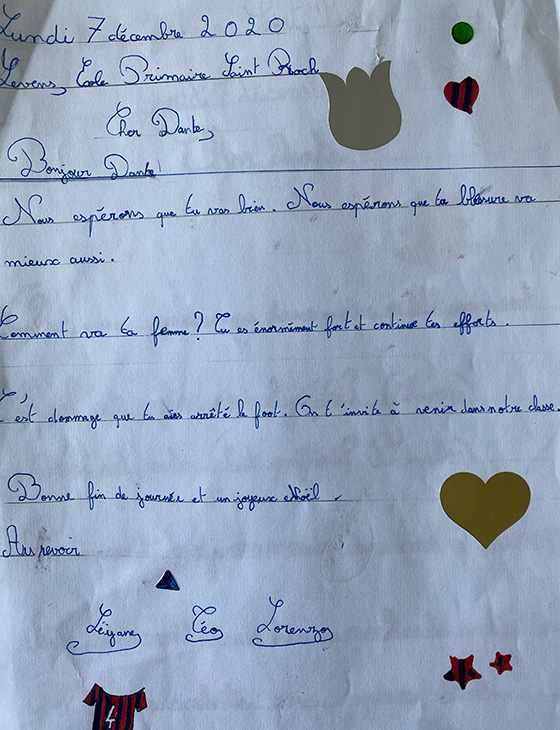 Lundi 7 décembre 2020
Levens, Ecole Primaire Saint Roch
Cher Dante,
Bonjour Dante
Nous espérons que tu vas bien. Nous espérons que ta bléssure va
mieux aussi.
Comment va ta femme? Tu es énormément fort et continue tes efforts.
C'est dommage que tu aies arrêté le foot. On t'invite à venir dans notre classe.
Bonne fin de journée et un joyeux Noël.
Au revoir
Téo Lorenzo
4